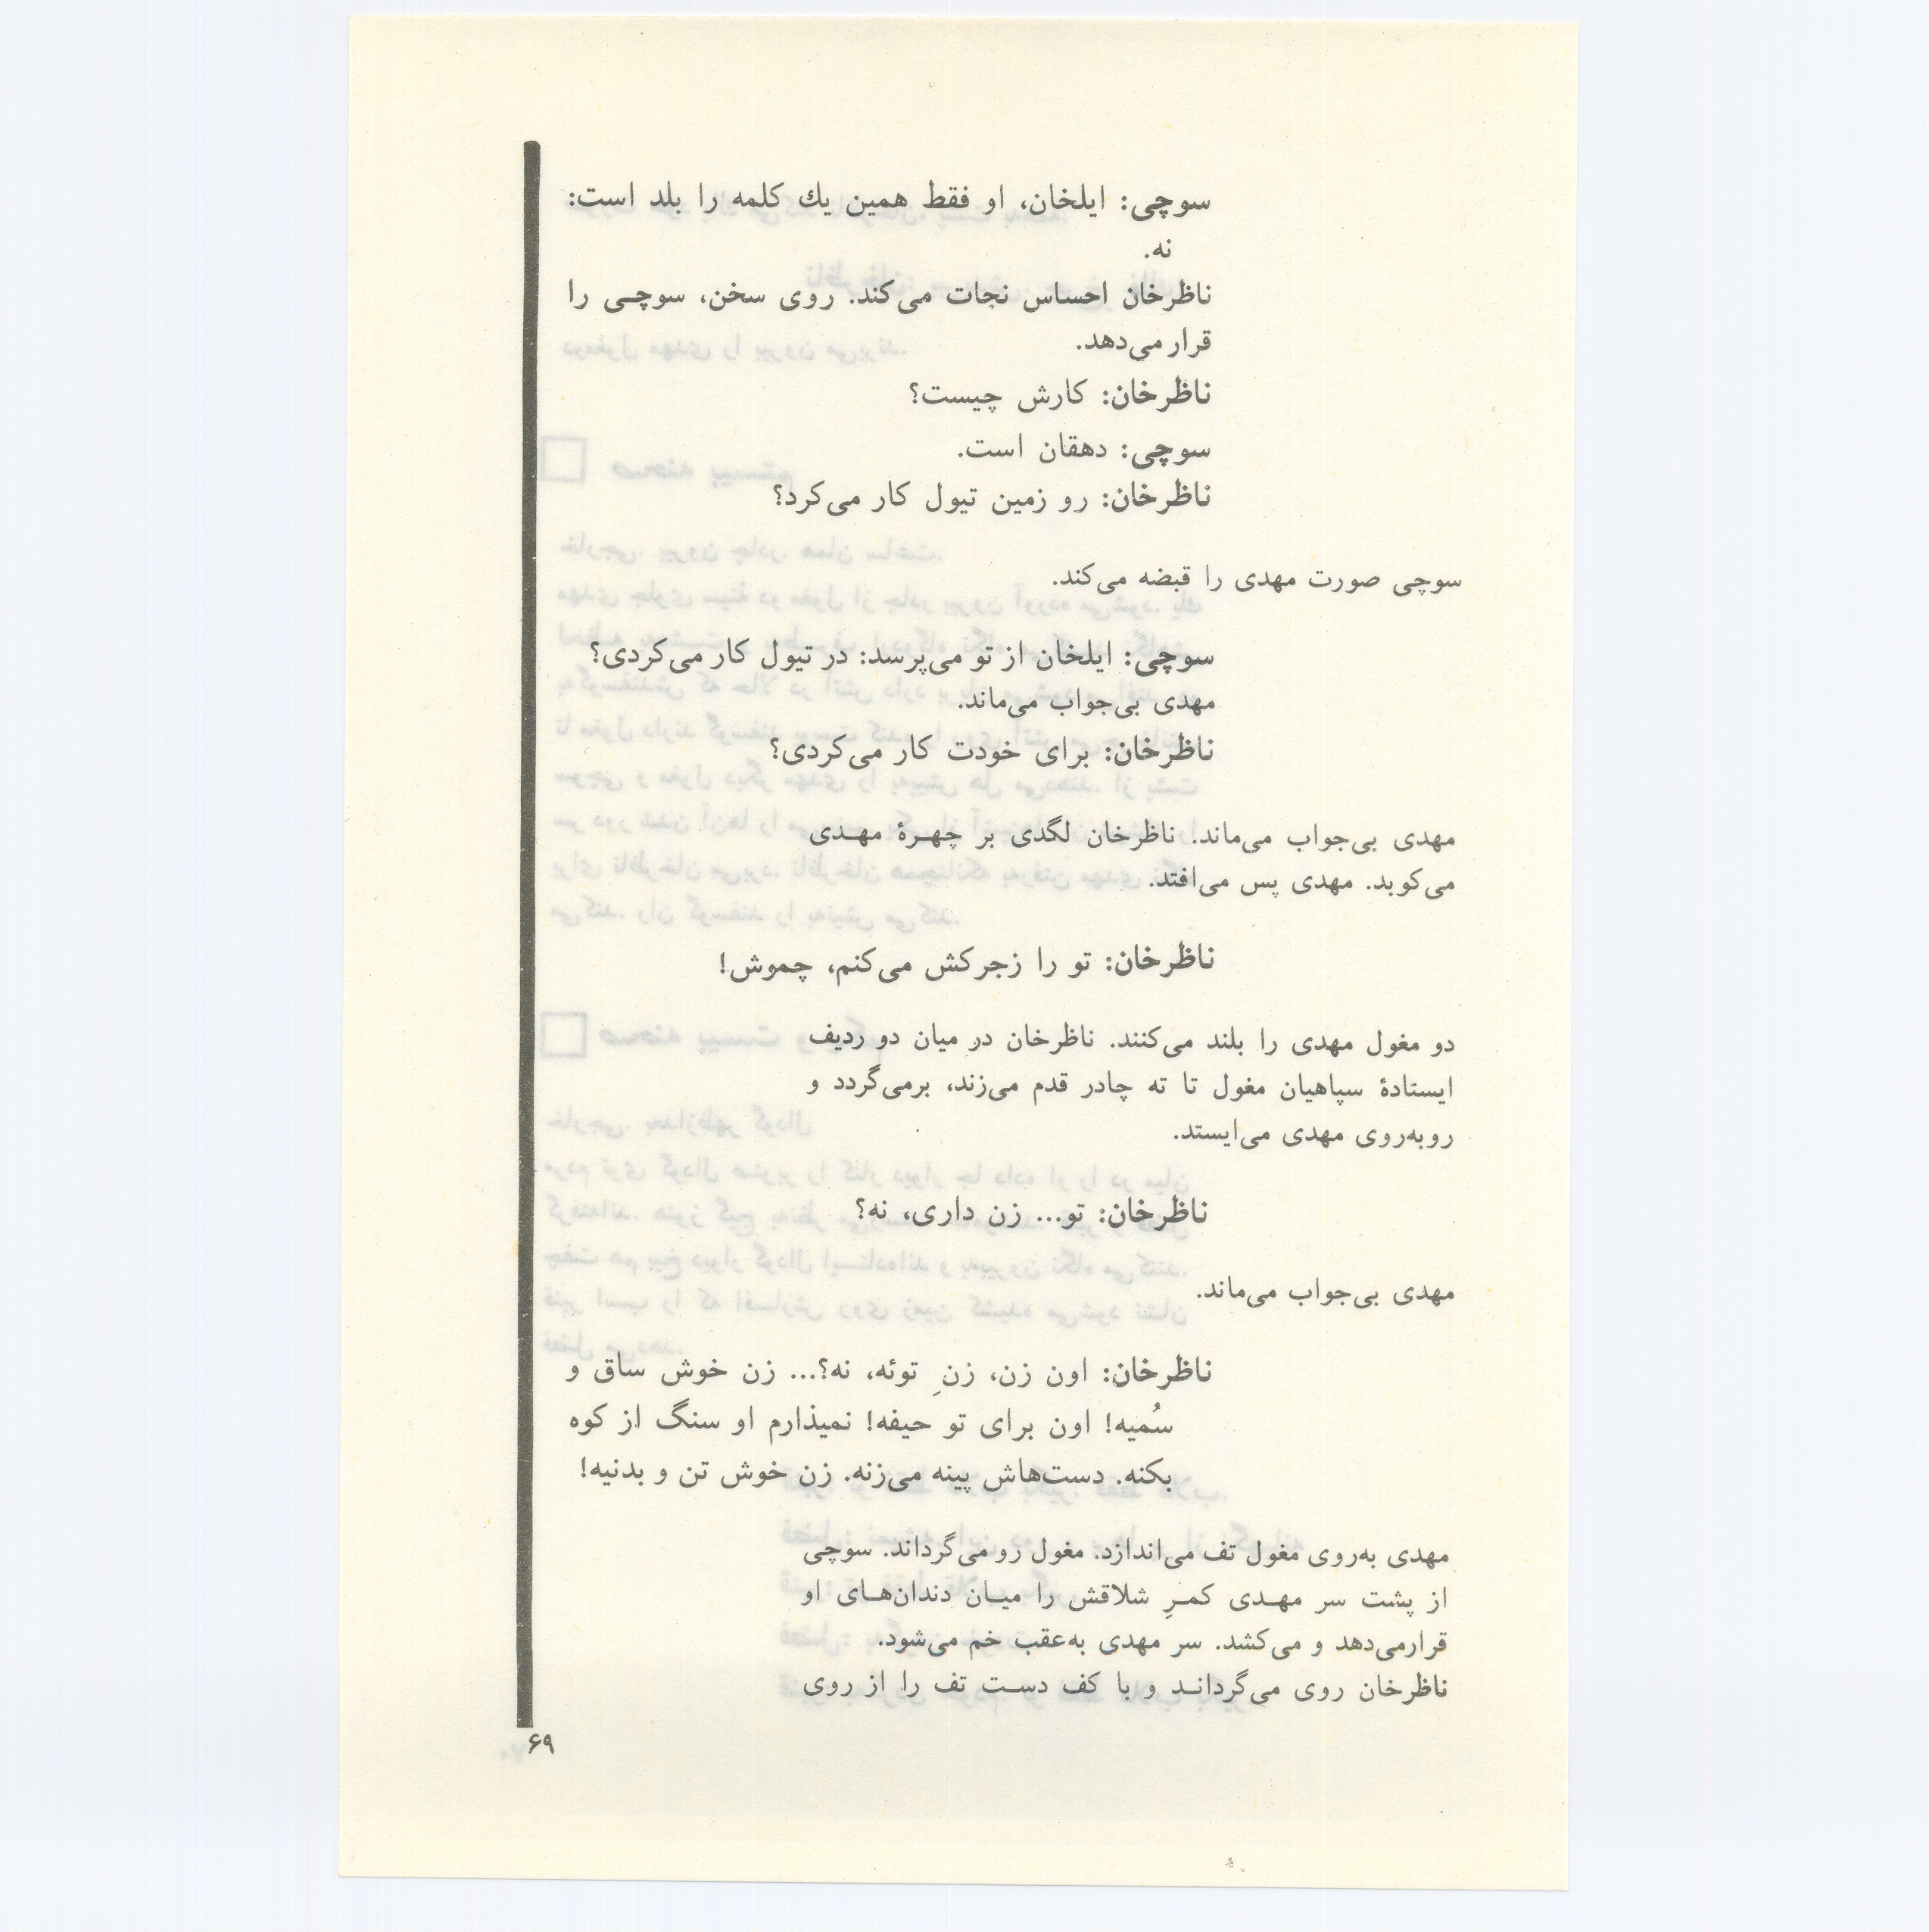 سوچی: ایلخان، او فقط همین یك کلمه را بلد است:
نه.
ناظرخان احساس نجات می‌کند. روی سخن، سوچی را
قرار می‌دهد.
ناظرخان: کارش چیست؟
سوچی: دهقان است.
ناظرخان: رو زمین تیول کار می‌کرد؟
سوچی صورت مهدی را قبضه می‌کند.
سوچی: ایلخان از تو می‌پرسد: در تیول کار می‌کردی؟
مهدی بی‌جواب می‌ماند.
ناظرخان: برای خودت کار می‌کردی؟
مهدی بی‌جواب می‌ماند. ناظرخان لگدی بر چهرهٔ مهدی
می‌کوبد. مهدی پس می‌افتد.
ناظرخان: تو را زجرکش می‌کنم، چموش!
دو مغول مهدی را بلند می‌کنند. ناظرخان در میان دو ردیف
ایستادهٔ سپاهیان مغول تا ته چادر قدم می‌زند، برمی‌گردد و
روبه‌روی مهدی می‌ایستد.
ناظرخان: تو... زن داری، نه؟
مهدی بی‌جواب می‌ماند.
ناظرخان: اون زن، زنِ توئه، نه؟... زن خوش ساق و
سُمیه! اون برای تو حیفه! نمیذارم او سنگ از کوه
بکنه. دست‌هاش پینه می‌زنه. زن خوش تن و بدنیه!
مهدی به‌روی مغول تف می‌اندازد. مغول رو می‌گرداند. سوچی
از پشت سر مهدی کمرِ شلاقش را میان دندان‌های او
قرارمی‌دهد و می‌کشد. سر مهدی به‌عقب خم می‌شود.
ناظرخان روی می‌گرداند و با کف دست تف را از روی
۶۹